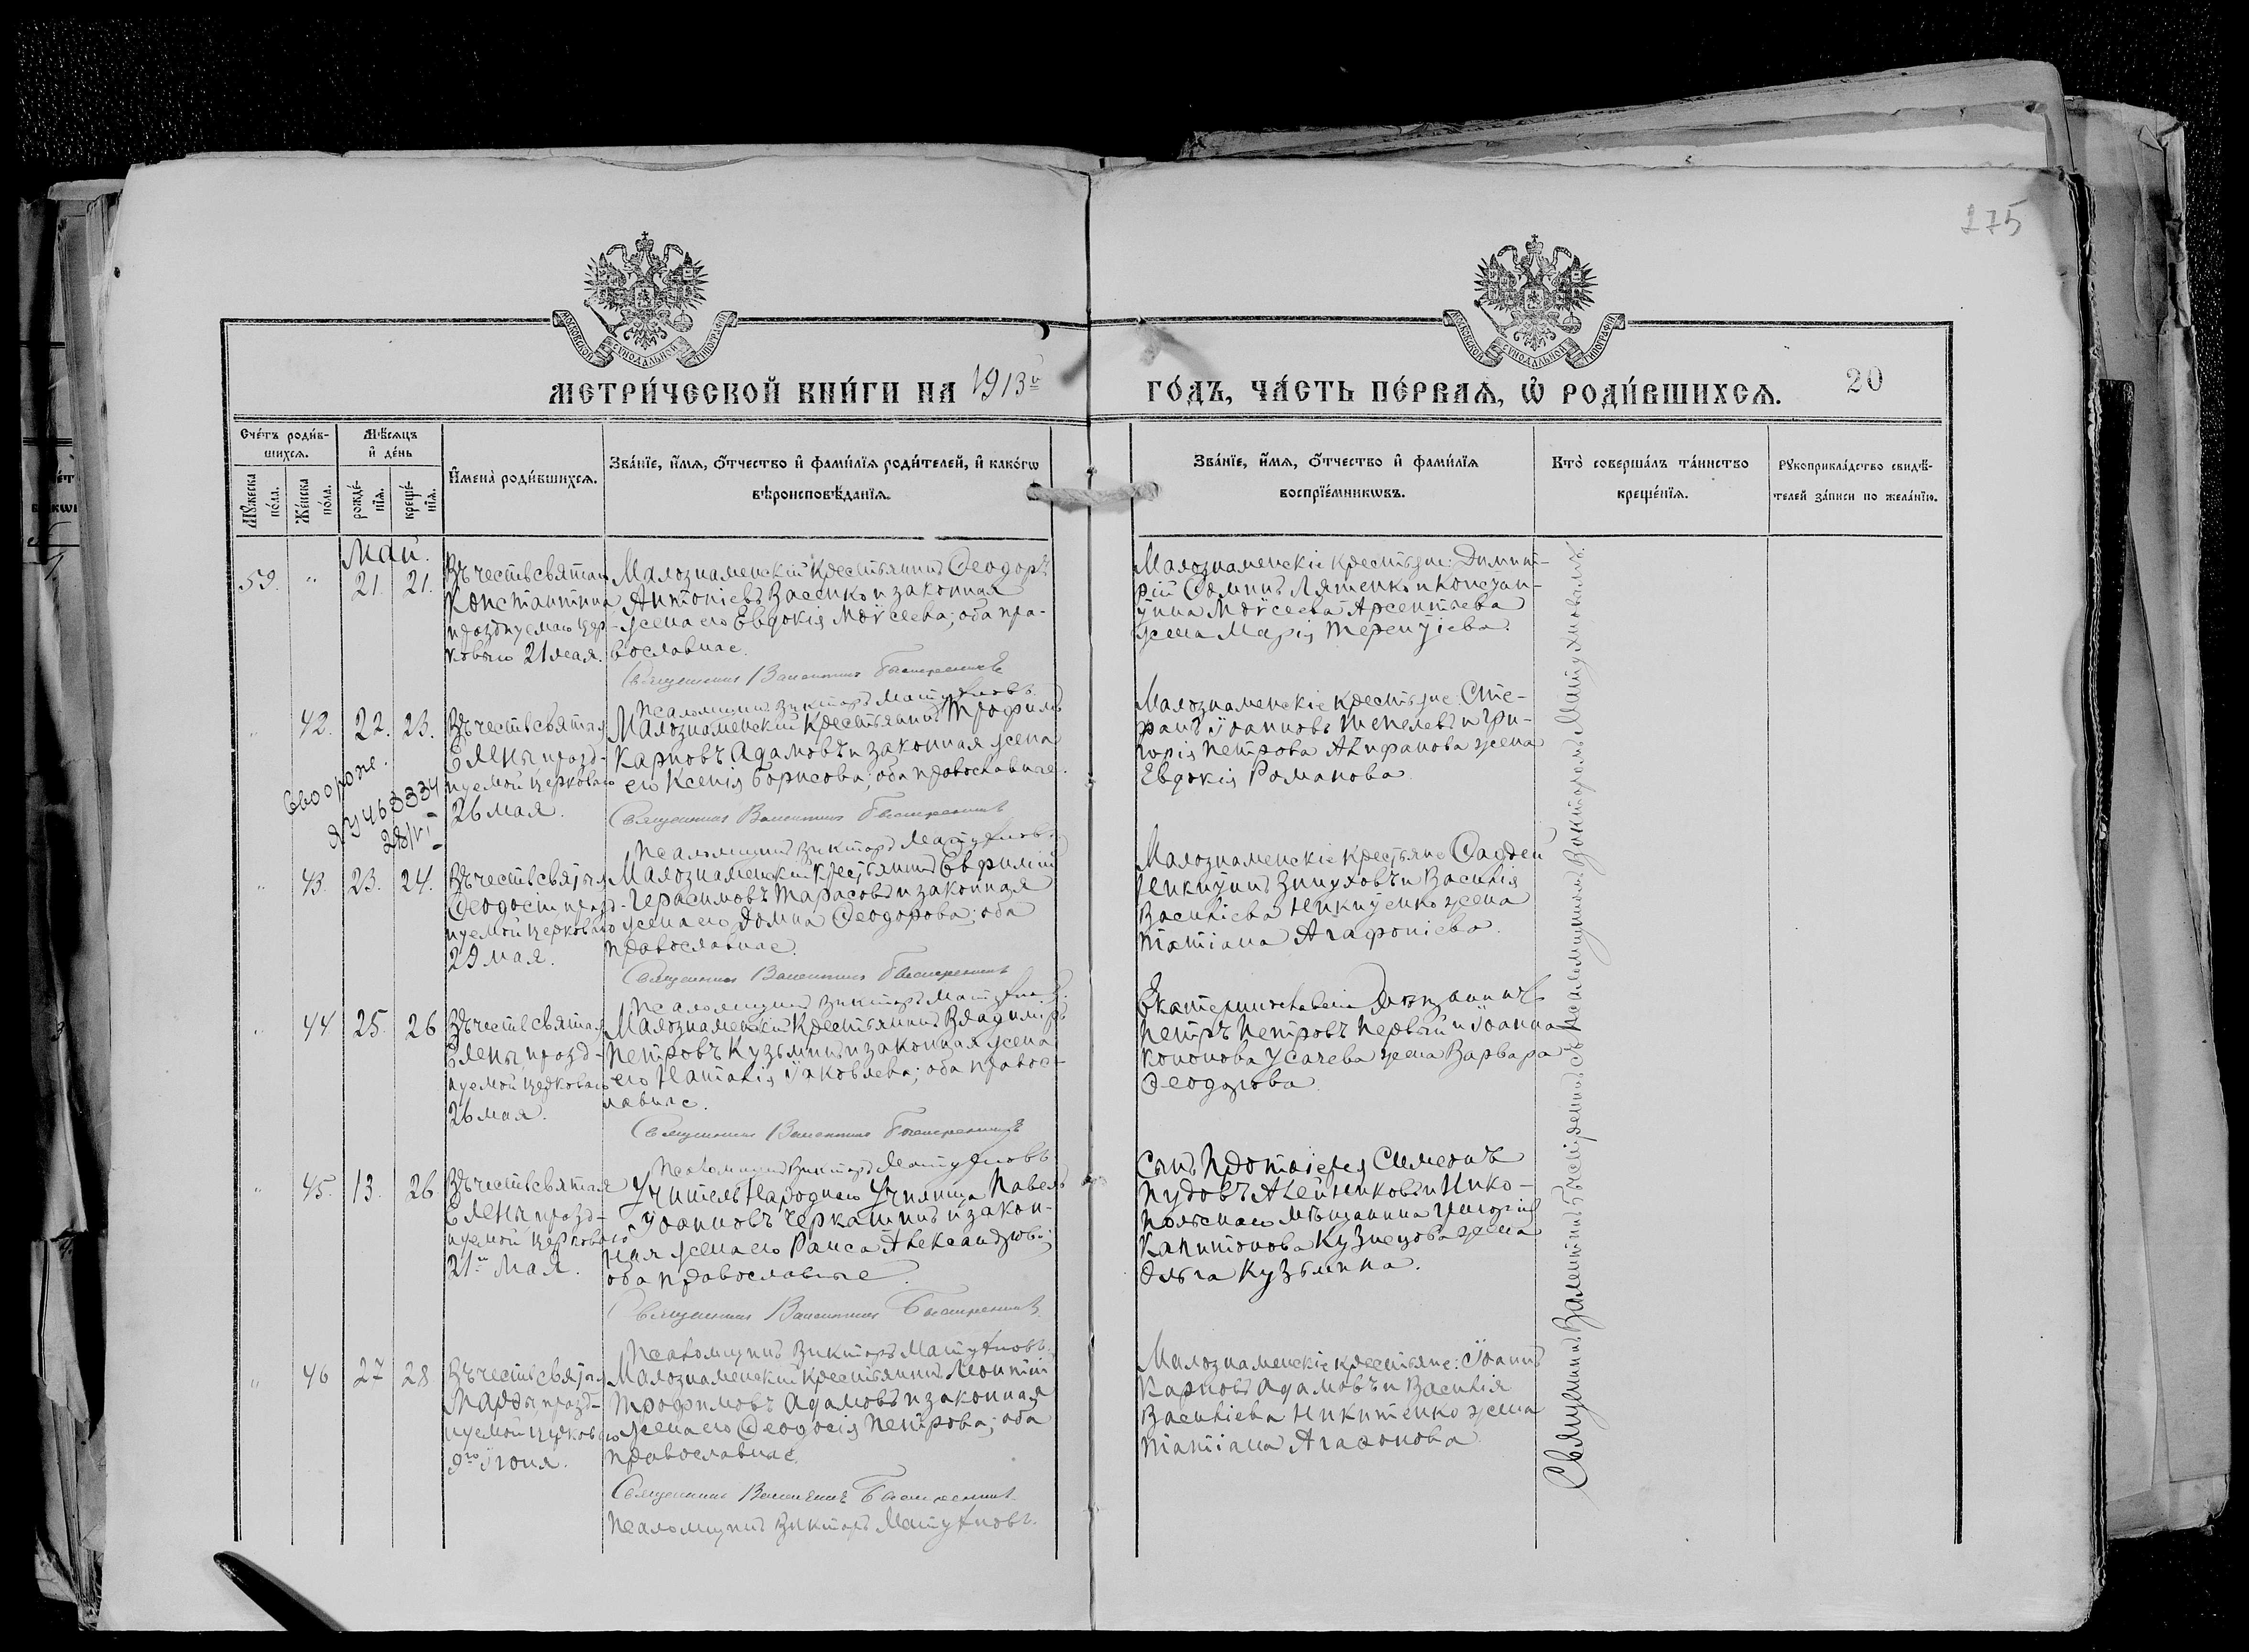 275
МОСКОВСКОЙ СΥНОДАЛЬНОЙ ТИПОГРАФІИ
МОСКОВСКОЙ СΥНОДАЛЬНОЙ ТИПОГРАФІИ
МЕТРИ́ЧЕСКОЙ КНИ́ГИ НА 1913й ГО́ДЪ, ЧА́СТЬ ПЕ́РВАѦ, Ѽ РОДИ́ВШИХСѦ.
20
Сче́тъ роди́в-
шихсѧ.
Мѣ́сѧцъ
и҆ де́нь
Мꙋ́жеска
по́ла.
Же́нска
по́ла.
рожде́-
нїѧ.
креще́-
нїѧ.
И҆мена̀ роди́вшихсѧ.
Зва́нїе, и҆́мѧ, ѻ҆́тчество и҆ фами́лїѧ роди́телей, и҆ како́гѡ
вѣроисповѣ́данїѧ.
Зва́нїе, и҆́мѧ, ѻ҆́тчество и҆ фами́лїѧ
воспрїе́мникѡвъ.
Кто̀ соверша́лъ та́инство
креще́нїѧ.
Рꙋкоприкла́дство свидѣ́-
телей за́писи по жела́нїю.
Май.
59. " 21. 21.
Въ честь святаго
Константина
празднуемаго цер-
ковью 21 мая.
Малознаменскій крестьянинъ Ѳеодоръ
Антоніевъ Васенко и законная
жена его Евдокія Моѵсеева; оба пра-
вославные.
Священникъ Валентинъ
Псаломщикъ Викторъ Матухновъ.
Малознаменскіе крестьяне: Димит-
рій Ѳоминъ Лятенко и Констан-
тина Моѵсеева Арсентьева
жена Марія Терентіева.
" 42. 22. 23.
Въ честь святая
Елены празд-
нуемой церковью
26 мая.
Малознаменскій крестьянинъ Трофимъ
Карповъ Адамовъ и законная жена
его Ксенія Борисова; оба православные.
Священникъ Валентинъ
Псаломщикъ Викторъ Матухновъ.
Малознаменскіе крестьяне: Сте-
фанъ Іоанновъ Тепелевъ и Гри-
горія Петрова Алифанова жена
Евдокія Романова.
463334
" 43. 23. 24.
Въ честь святыя
Ѳеодосіи, празд-
нуемой церковью
29 мая.
Малознаменскій крестьянинъ Евфимій
Герасимовъ Тарасовъ и законная
жена его Домна Ѳеодорова; оба
православные.
Священникъ Валентинъ
Псаломщикъ Викторъ Матухновъ.
Малознаменскіе крестьяне Ѳаддей
Никитинъ Зинуховъ и Василія
Василіева Никитенко жена
Татіана Агафоніева.
" 44 25. 26
Въ честь святая
Елены, празд-
нуемой церковью
26 мая.
Малознаменскій крестьянинъ Владиміръ
Петровъ Кузьминъ и законная жена
его Наталія Іаковлева; оба правос-
лавные.
Священникъ Валентинъ
Псаломщикъ Викторъ Матухновъ.
Петръ Петровъ Первый и Іоанна
Кононова Усачева жена Варвара
Ѳеодорова.
" 45. 13. 26
Въ честь святая
Елены празд-
нуемой церковью
21го мая.
Учитель Народнаго Училища Павелъ
Іоанновъ Черкашинъ и закон-
ная жена его Раиса Александрова;
оба православные.
Священникъ Валентинъ
Псаломщикъ Викторъ Матухновъ.
Сынъ Протоіерея Симеонъ
Пудовъ Алейниковъ и Нико-
польскаго мѣщанина Григорія
Капитонова Кузнецова жена
Ольга Кузьмина.
" 46 27 28
Въ честь святыя
Марѳы, празд-
нуемой церковью
9го Іюня.
Малознаменскій крестьянинъ Леонтій
Трофимовъ Адамовъ и законная
жена его Ѳеодосія Петрова; оба
православные.
Священникъ Валентинъ
Псаломщикъ Викторъ Матухновъ.
Малознаменскіе крестьяне: Іоаннъ
Карповъ Адамовъ и Василія
Василіева Никитенко жена
Татіана Агаѳонова.
Священникъ Валентинъ съ псаломщикомъ Викторомъ Матухновымъ.